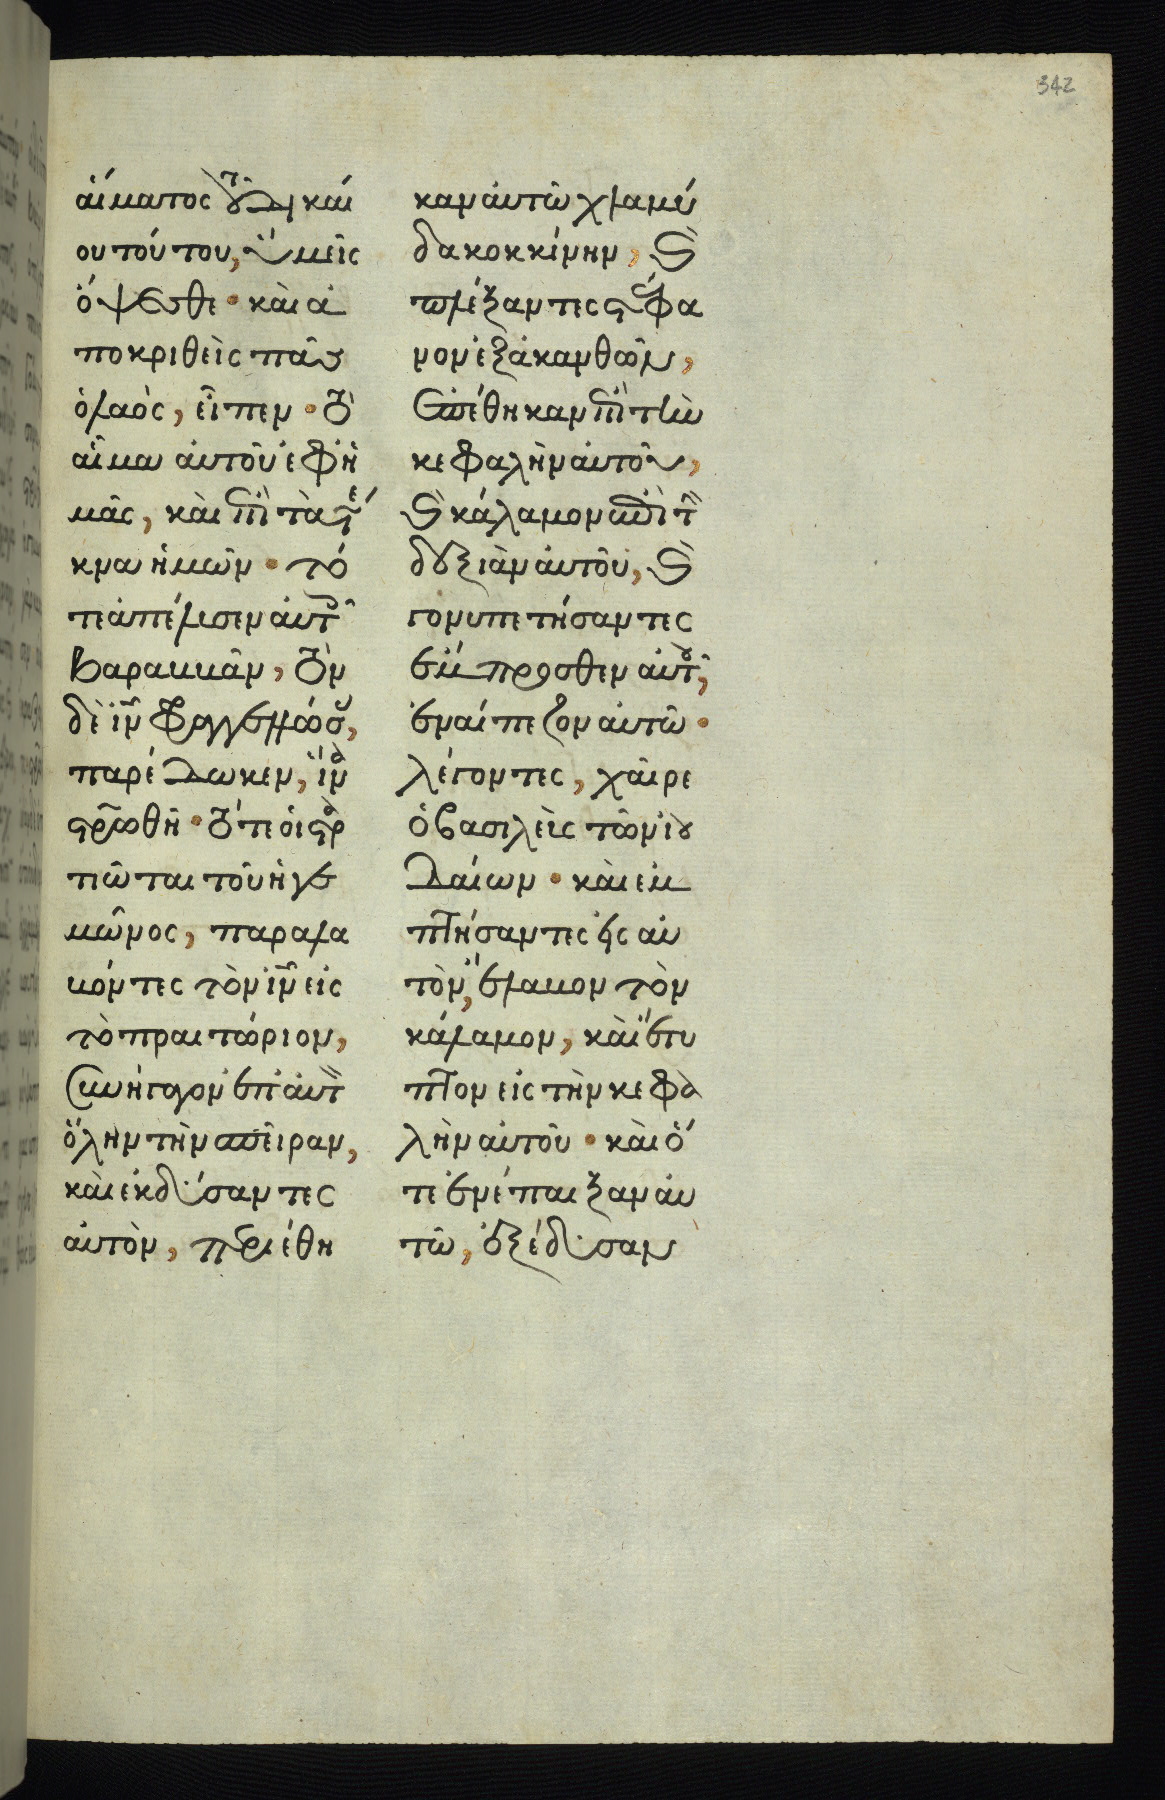 342
αἵματος τοῦ δικαί
ου τούτου, ὑμεῖς
ὄψεσθε · καὶ ἀ
ποκριθεὶς πᾶς
ὁ λαὸς, εἶπεν · τὸ
αἷμα αὐτοῦ ἐφ ἡ
μᾶς, καὶ ἐπὶ τὰ τέ
κνα ἡμῶν · τό
τε ἀπέλυσεν αὐτοῖς
βαραββᾶν, τὸν
δὲ ἰν φραγγελλώσας,
παρέδωκεν, ἵνα
σταυρωθῆ · τότε οἱ στρα
τιῶται τοῦ ἡγε
μῶνος, παραλα
βόντες τὸν ἰν εἰς
τὸ πραιτώριον,
συνήγαγον ἐπ αὐτὸν
ὅλην τὴν σπεῖραν,
καὶ ἐκδύσαντες
αὐτὸν, περιέθη
καν αὐτῶ χλαμύ
δα κοκκίνην, καὶ
πλέξαντες στέφα
νον ἐξ ἀκανθῶν,
ἐπέθηκαν ἐπὶ τὴν
κεφαλὴν αὐτοῦ,
καὶ κάλαμον ἐπὶ τὴν
δεξιὰν αὐτοῦ, καὶ
γονυπετήσαντες
ἔμπροσθεν αὐτοῦ,
ἐνέπαιζον αὐτῶ ·
λέγοντες, χαῖρε
ὁ βασιλεὺς τῶν ἰου
δαίων · καὶ ἐμ
πτήσαντες εἰς αὐ
τὸν, ἔλαβον τὸν
κάλαμον, καὶ ἔτυ
πτον εἰς τὴν κεφα
λὴν αὐτοῦ · καὶ ὅ
τε ἐνέπαιξαν αὐ
τῶ, ἐξέδυσαν